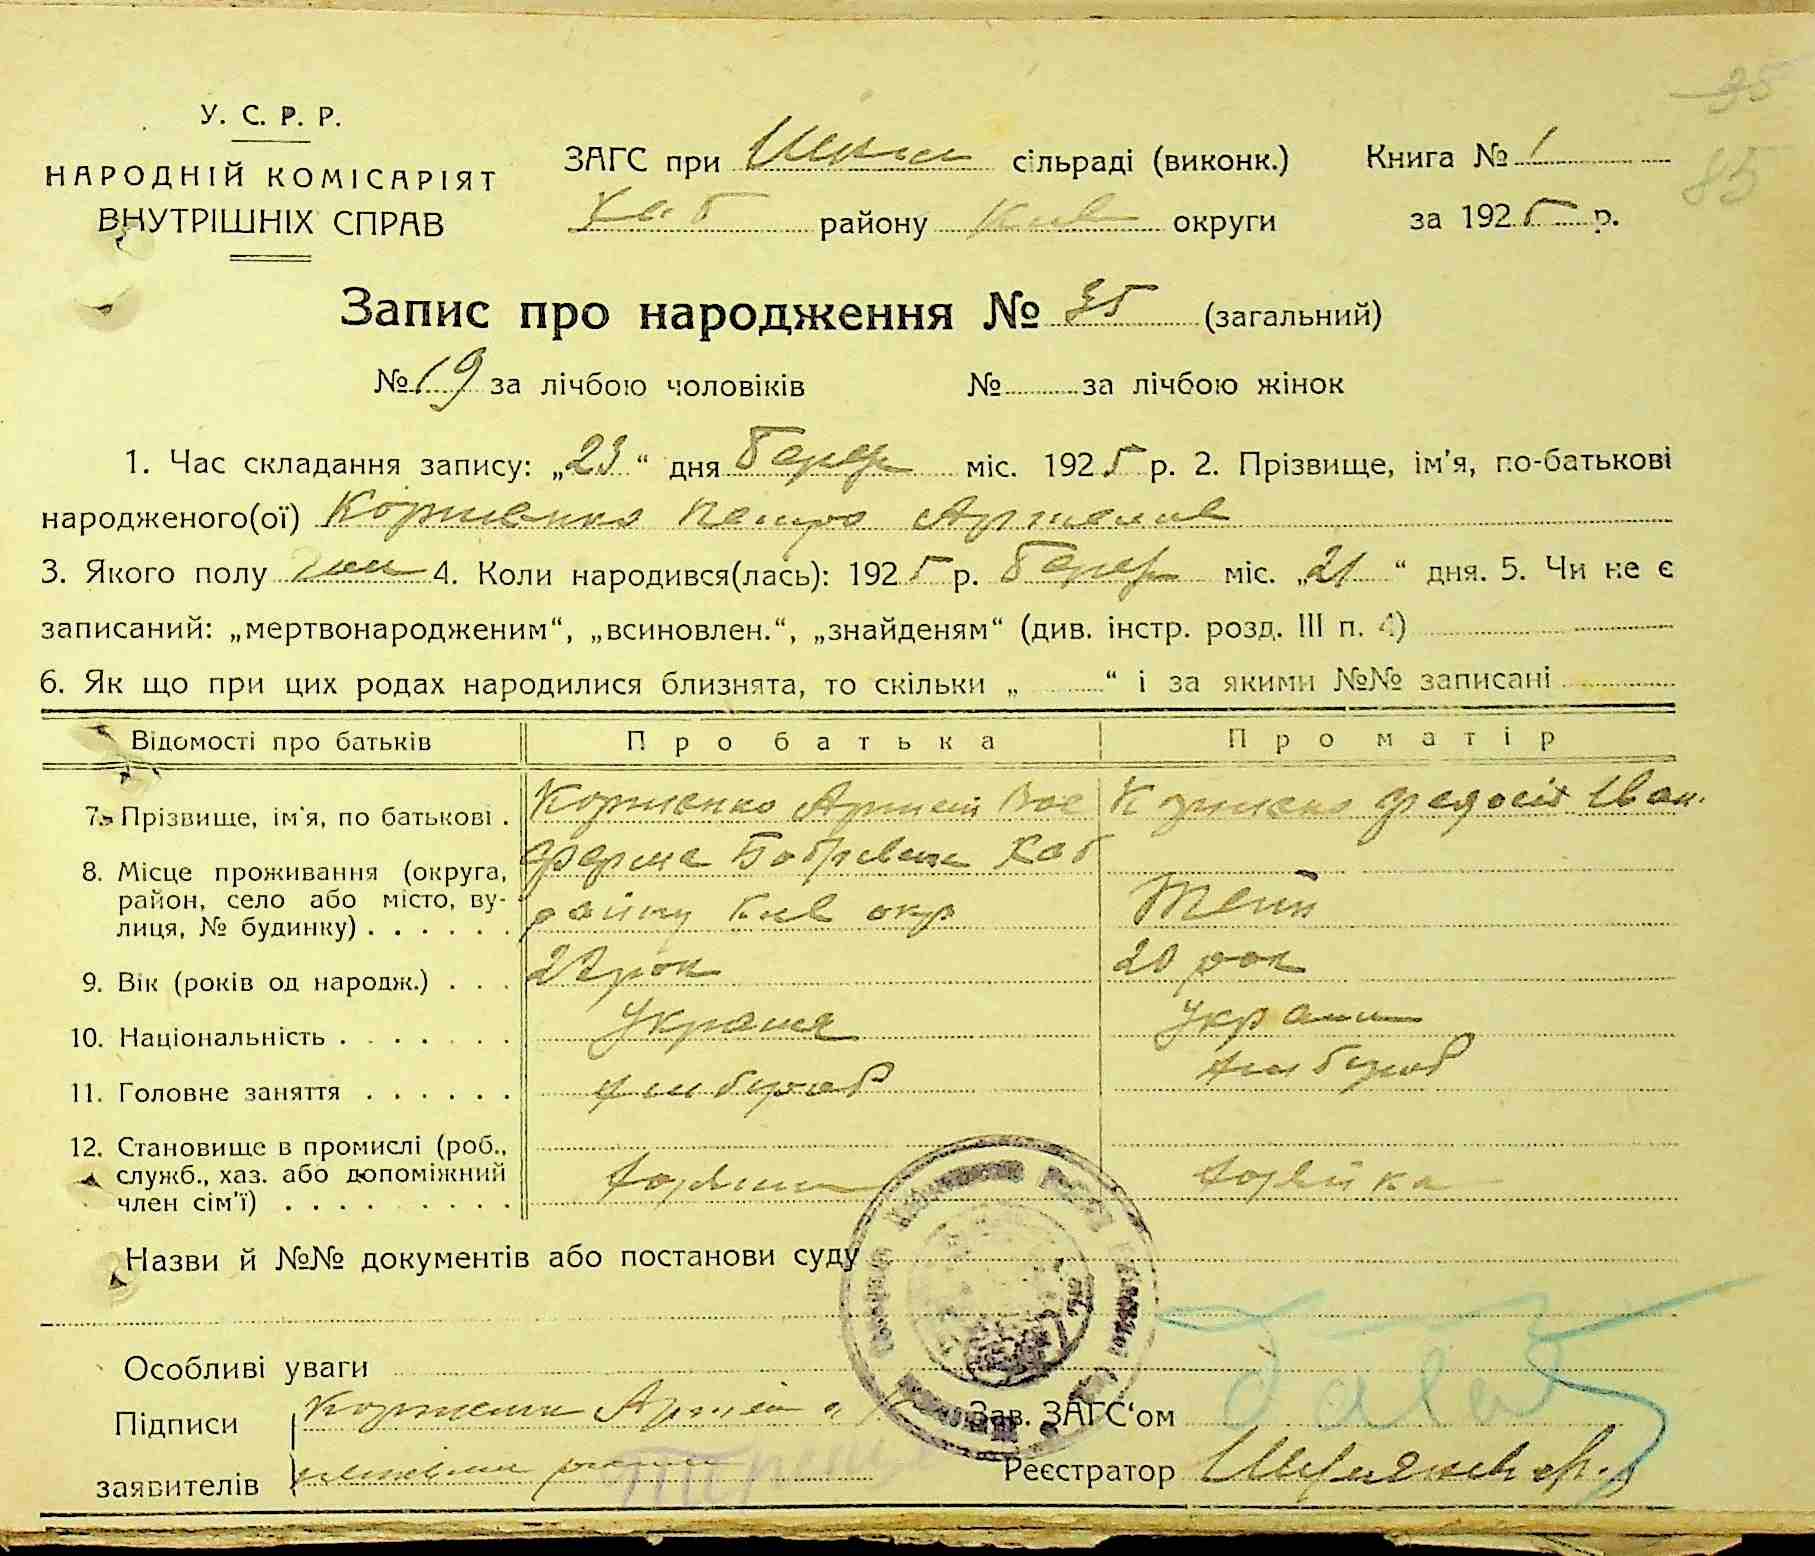 35
85
У. С. Р. Р.
НАРОДНІЙ КОМІСАРІЯТ
ВНУТРІШНІХ СПРАВ
ЗАГС при сільраді (виконк.) Книга № 1
Хаб району Київ округи за 1925 р.
Запис про народження № 35 (загальний)
№ 19 за лічбою чоловіків № за лічбою жінок
1. Час складання запису: „23“ дня берез міс. 1925 р. 2. Прізвище, ім'я, по-батькові
народженого(ої) Корженко Петро Артемов
3. Якого полу 4. Коли народився(лась): 1925 р. берез міс. „21“ дня. 5. Чи не є
записаний: „мертвонародженим“, „всиновлен.“, „знайденям“ (див. інстр. розд. III п. 4)
6. Як що при цих родах народилися близнята, то скільки „ “ і за якими №№ записані
Відомості про батьків Про батька Про матір
7. Прізвище, ім'я, по батькові . Корженко Артем Корженко Федосія Іван.
8. Місце проживання (округа, район, село або місто, вулиця, № будинку) . . . . . . ферма Хаб
району Київ окр
9. Вік (років од народж.) . . . рок 20 рок
10. Національність . . . . . . . Україн Україн
11. Головне заняття . . . . . . хлібороб хлібороб
12. Становище в промислі (роб., служб., хаз. або допоміжний член сім'ї) . . . . . . . . .
Назви й №№ документів або постанови суду
Особливі уваги
Підписи Корженко Артем Зав. ЗАГС'ом
заявителів Реєстратор